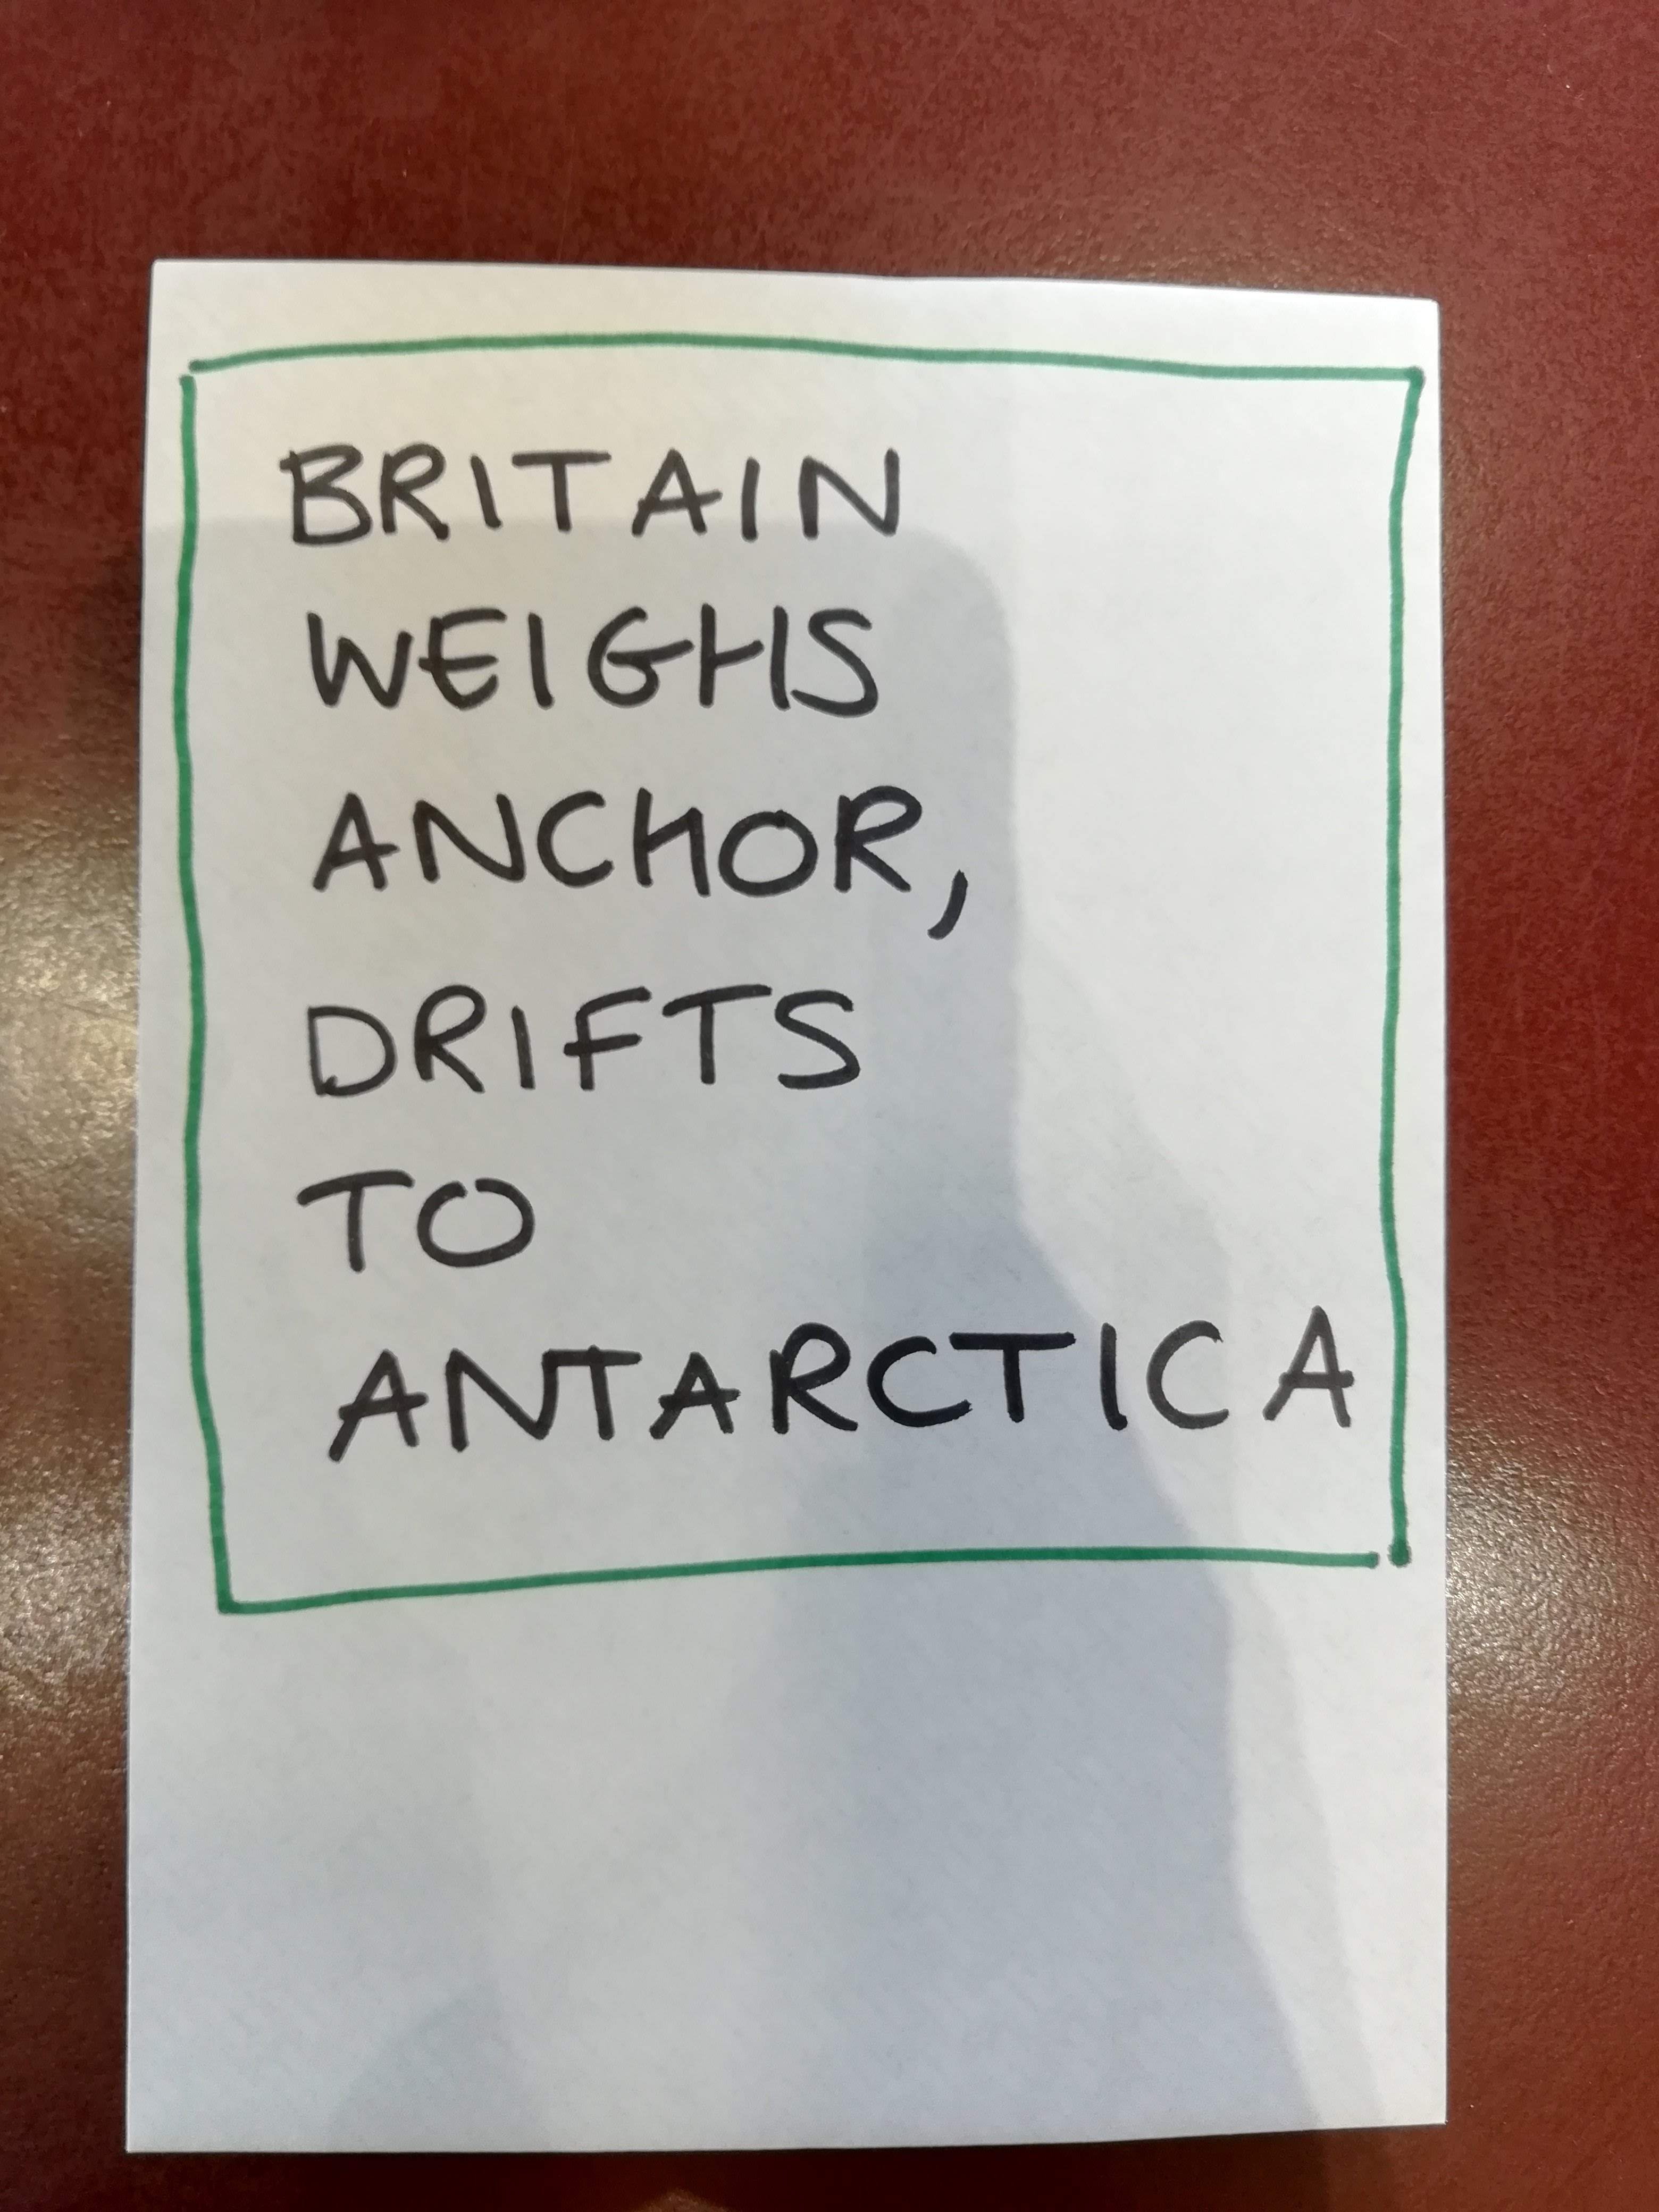 BRITAIN
WEIGHS
ANCHOR,
DRIFTS
TO
ANTARCTICA